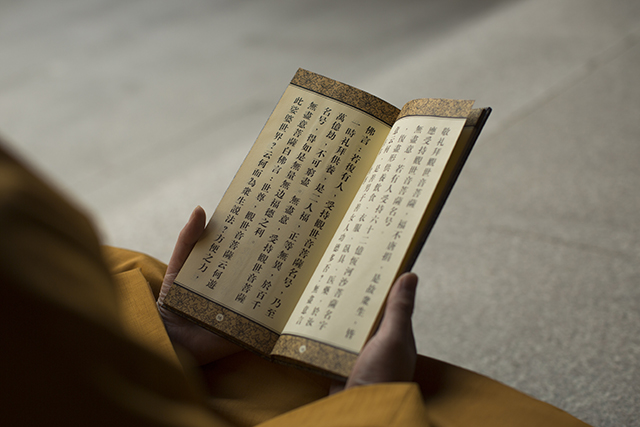 敬礼拜觀世音菩薩，福不唐捐，是故衆生，皆
應受持觀世音菩薩名号。
無盡意，若有人受持六十二億恒河沙菩薩名字，
復盡形供養飲食衣服卧具醫藥，於汝
意云何，是善男子善女人功德多否？無盡意言
佛言：若復有人，受持觀世音菩薩名号，乃至
一時礼拜供養，是二人福，正等無異，於百千
萬億劫，不可窮盡。無盡意，受持觀世音菩薩
名号，得如是無量無邊福德之利。
無盡意菩薩白佛言：世尊，觀世音菩薩云何遊
此娑婆世界？云何而為衆生說法？方便之力，